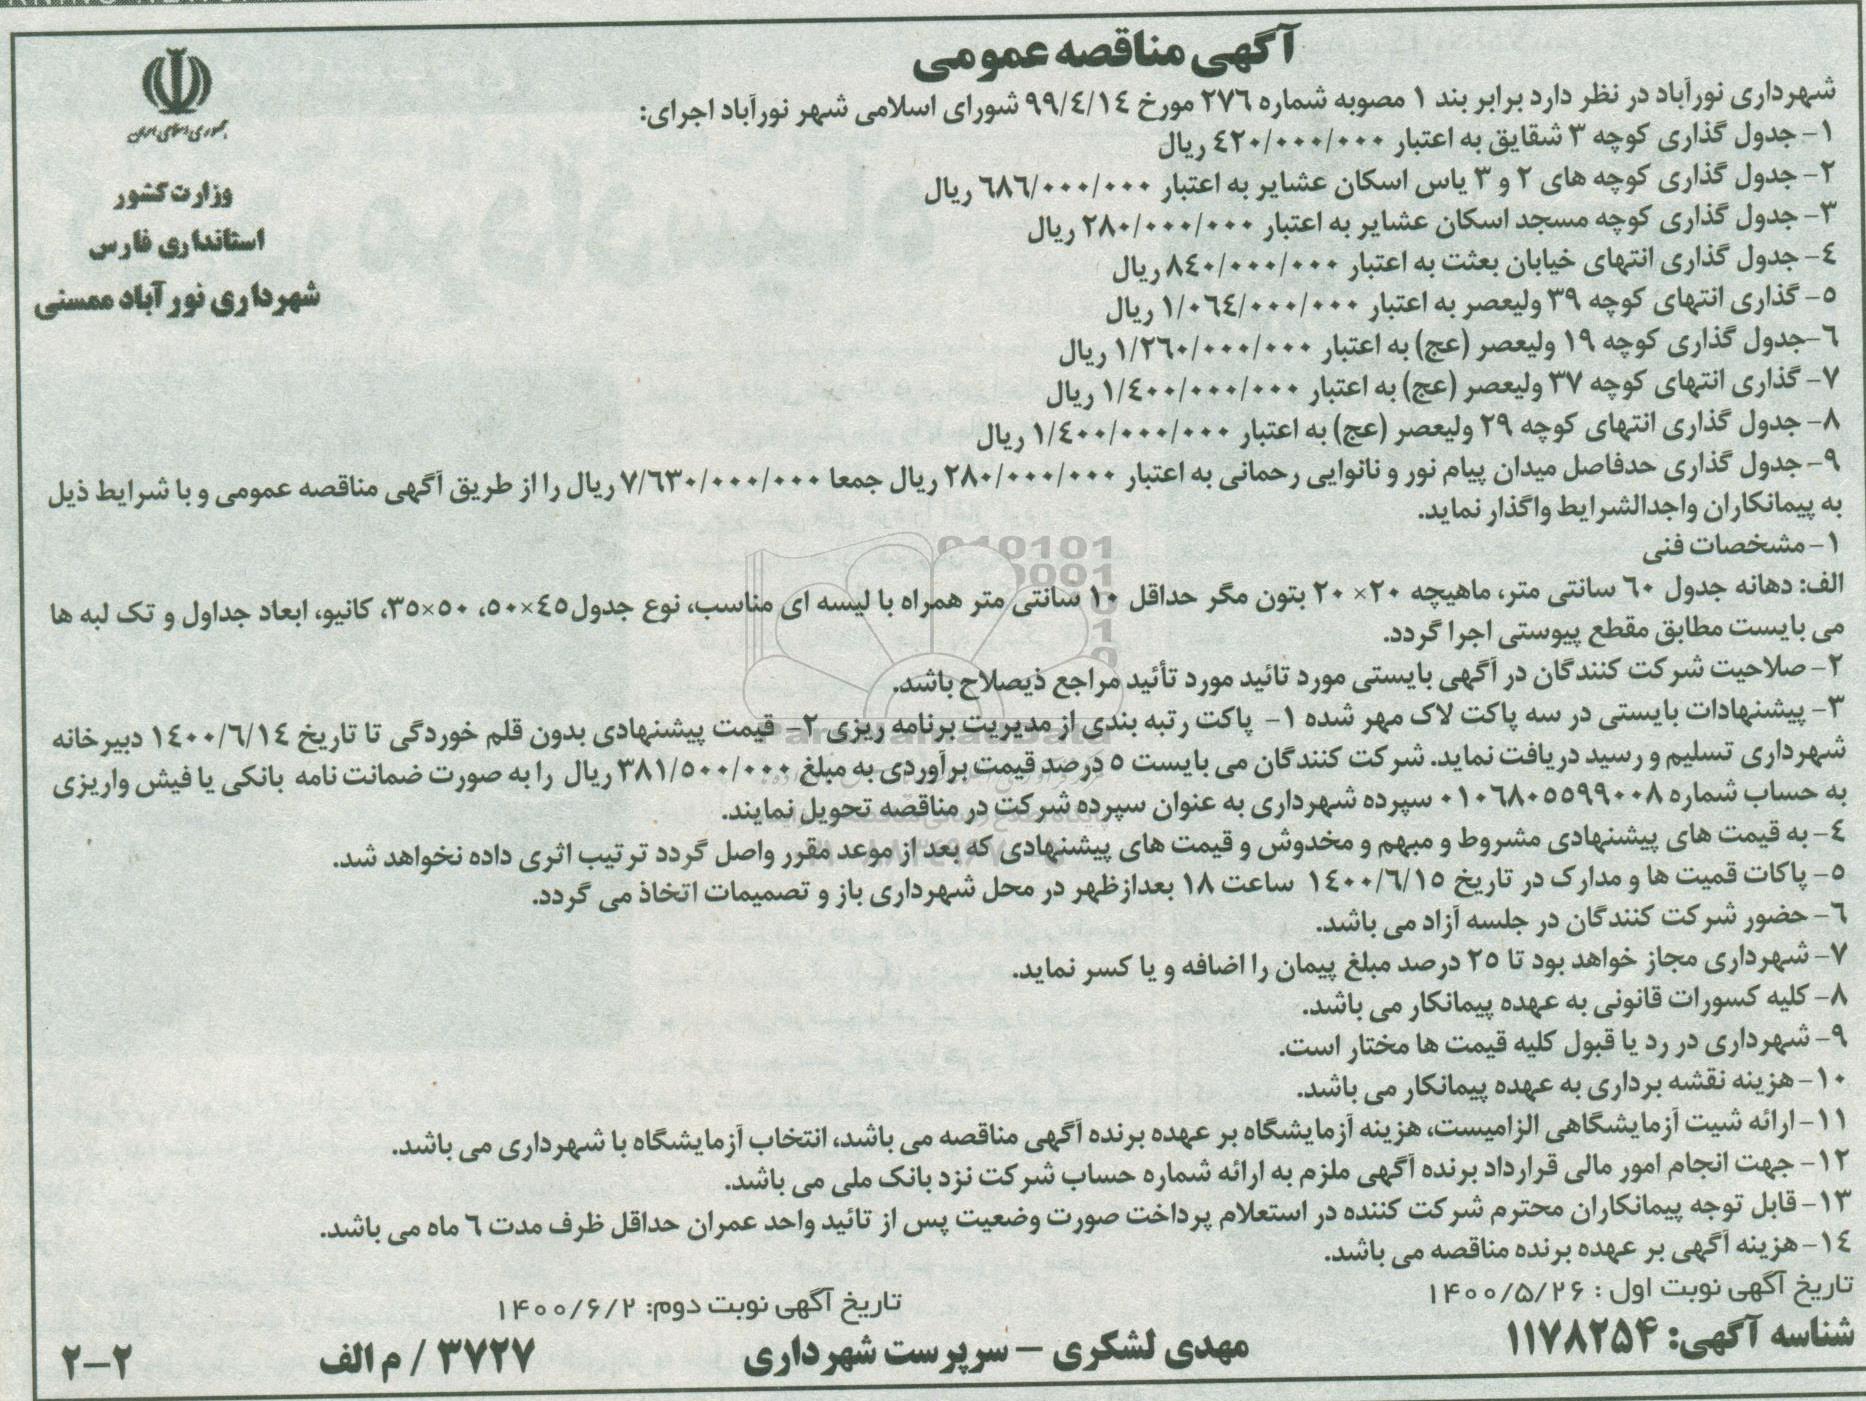 آگهی مناقصه عمومی
جمهوری اسلامی ایران
وزارت کشور
استانداری فارس
شهرداری نورآباد ممسنی
شهرداری نورآباد در نظر دارد برابر بند ۱ مصوبه شماره ۲۷۶ مورخ ۹۹/۴/۱۴ شورای اسلامی شهر نورآباد اجرای:
۱- جدول گذاری کوچه ۳ شقایق به اعتبار ۴۲۰/۰۰۰/۰۰۰ ریال
۲- جدول گذاری کوچه های ۲ و ۳ یاس اسکان عشایر به اعتبار ۶۸۶/۰۰۰/۰۰۰ ریال
۳- جدول گذاری کوچه مسجد اسکان عشایر به اعتبار ۲۸۰/۰۰۰/۰۰۰ ریال
۴- جدول گذاری انتهای خیابان بعثت به اعتبار ۸۴۰/۰۰۰/۰۰۰ ریال
۵- گذاری انتهای کوچه ۳۹ ولیعصر به اعتبار ۱/۰۶۴/۰۰۰/۰۰۰ ریال
۶-جدول گذاری کوچه ۱۹ ولیعصر (عج) به اعتبار ۱/۲۶۰/۰۰۰/۰۰۰ ریال
۷- گذاری انتهای کوچه ۳۷ ولیعصر (عج) به اعتبار ۱/۴۰۰/۰۰۰/۰۰۰ ریال
۸- جدول گذاری انتهای کوچه ۲۹ ولیعصر (عج) به اعتبار ۱/۴۰۰/۰۰۰/۰۰۰ ریال
۹- جدول گذاری حدفاصل میدان پیام نور و نانوایی رحمانی به اعتبار ۲۸۰/۰۰۰/۰۰۰ ریال جمعا ۷/۶۳۰/۰۰۰/۰۰۰ ریال را از طریق آگهی مناقصه عمومی و با شرایط ذیل
به پیمانکاران واجدالشرایط واگذار نماید.
۱- مشخصات فنی
الف: دهانه جدول ۶۰ سانتی متر، ماهیچه ۲۰× ۲۰ بتون مگر حداقل ۱۰ سانتی متر همراه با لیسه ای مناسب، نوع جدول۴۵×۵۰، ۵۰×۳۵، کانیو، ابعاد جداول و تک لبه ها
می بایست مطابق مقطع پیوستی اجرا گردد.
۲- صلاحیت شرکت کنندگان در آگهی بایستی مورد تائید مورد تأئید مراجع ذیصلاح باشد.
۳- پیشنهادات بایستی در سه پاکت لاک مهر شده ۱- پاکت رتبه بندی از مدیریت برنامه ریزی ۲- قیمت پیشنهادی بدون قلم خوردگی تا تاریخ ۱۴۰۰/۶/۱۴ دبیرخانه
شهرداری تسلیم و رسید دریافت نماید. شرکت کنندگان می بایست ۵ درصد قیمت برآوردی به مبلغ ۳۸۱/۵۰۰/۰۰۰ ریال را به صورت ضمانت نامه بانکی یا فیش واریزی
به حساب شماره ۰۱۰۶۸۰۵۵۹۹۰۰۸ سپرده شهرداری به عنوان سپرده شرکت در مناقصه تحویل نمایند.
۴- به قیمت های پیشنهادی مشروط و مبهم و مخدوش و قیمت های پیشنهادی که بعد از موعد مقرر واصل گردد ترتیب اثری داده نخواهد شد.
۵- پاکات قمیت ها و مدارک در تاریخ ۱۴۰۰/۶/۱۵ ساعت ۱۸ بعدازظهر در محل شهرداری باز و تصمیمات اتخاذ می گردد.
۶- حضور شرکت کنندگان در جلسه آزاد می باشد.
۷- شهرداری مجاز خواهد بود تا ۲۵ درصد مبلغ پیمان را اضافه و یا کسر نماید.
۸- کلیه کسورات قانونی به عهده پیمانکار می باشد.
۹- شهرداری در رد یا قبول کلیه قیمت ها مختار است.
۱۰- هزینه نقشه برداری به عهده پیمانکار می باشد.
۱۱- ارائه شیت آزمایشگاهی الزامیست، هزینه آزمایشگاه بر عهده برنده آگهی مناقصه می باشد، انتخاب آزمایشگاه با شهرداری می باشد.
۱۲- جهت انجام امور مالی قرارداد برنده آگهی ملزم به ارائه شماره حساب شرکت نزد بانک ملی می باشد.
۱۳- قابل توجه پیمانکاران محترم شرکت کننده در استعلام پرداخت صورت وضعیت پس از تائید واحد عمران حداقل ظرف مدت ۶ ماه می باشد.
۱۴- هزینه آگهی بر عهده برنده مناقصه می باشد.
تاریخ آگهی نوبت اول : ۱۴۰۰/۵/۲۶
تاریخ آگهی نوبت دوم: ۱۴۰۰/۶/۲
شناسه آگهی: ۱۱۷۸۲۵۴
مهدی لشکری – سرپرست شهرداری
۳۷۲۷ / م الف
۲-۲